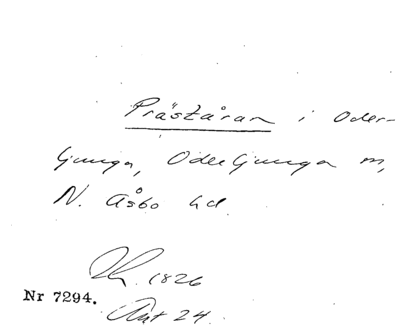 Präståran i Oder-
ljunga, Oderljunga m,
N. Åsbo hd.
1826
Nr 7294.
Ant 24